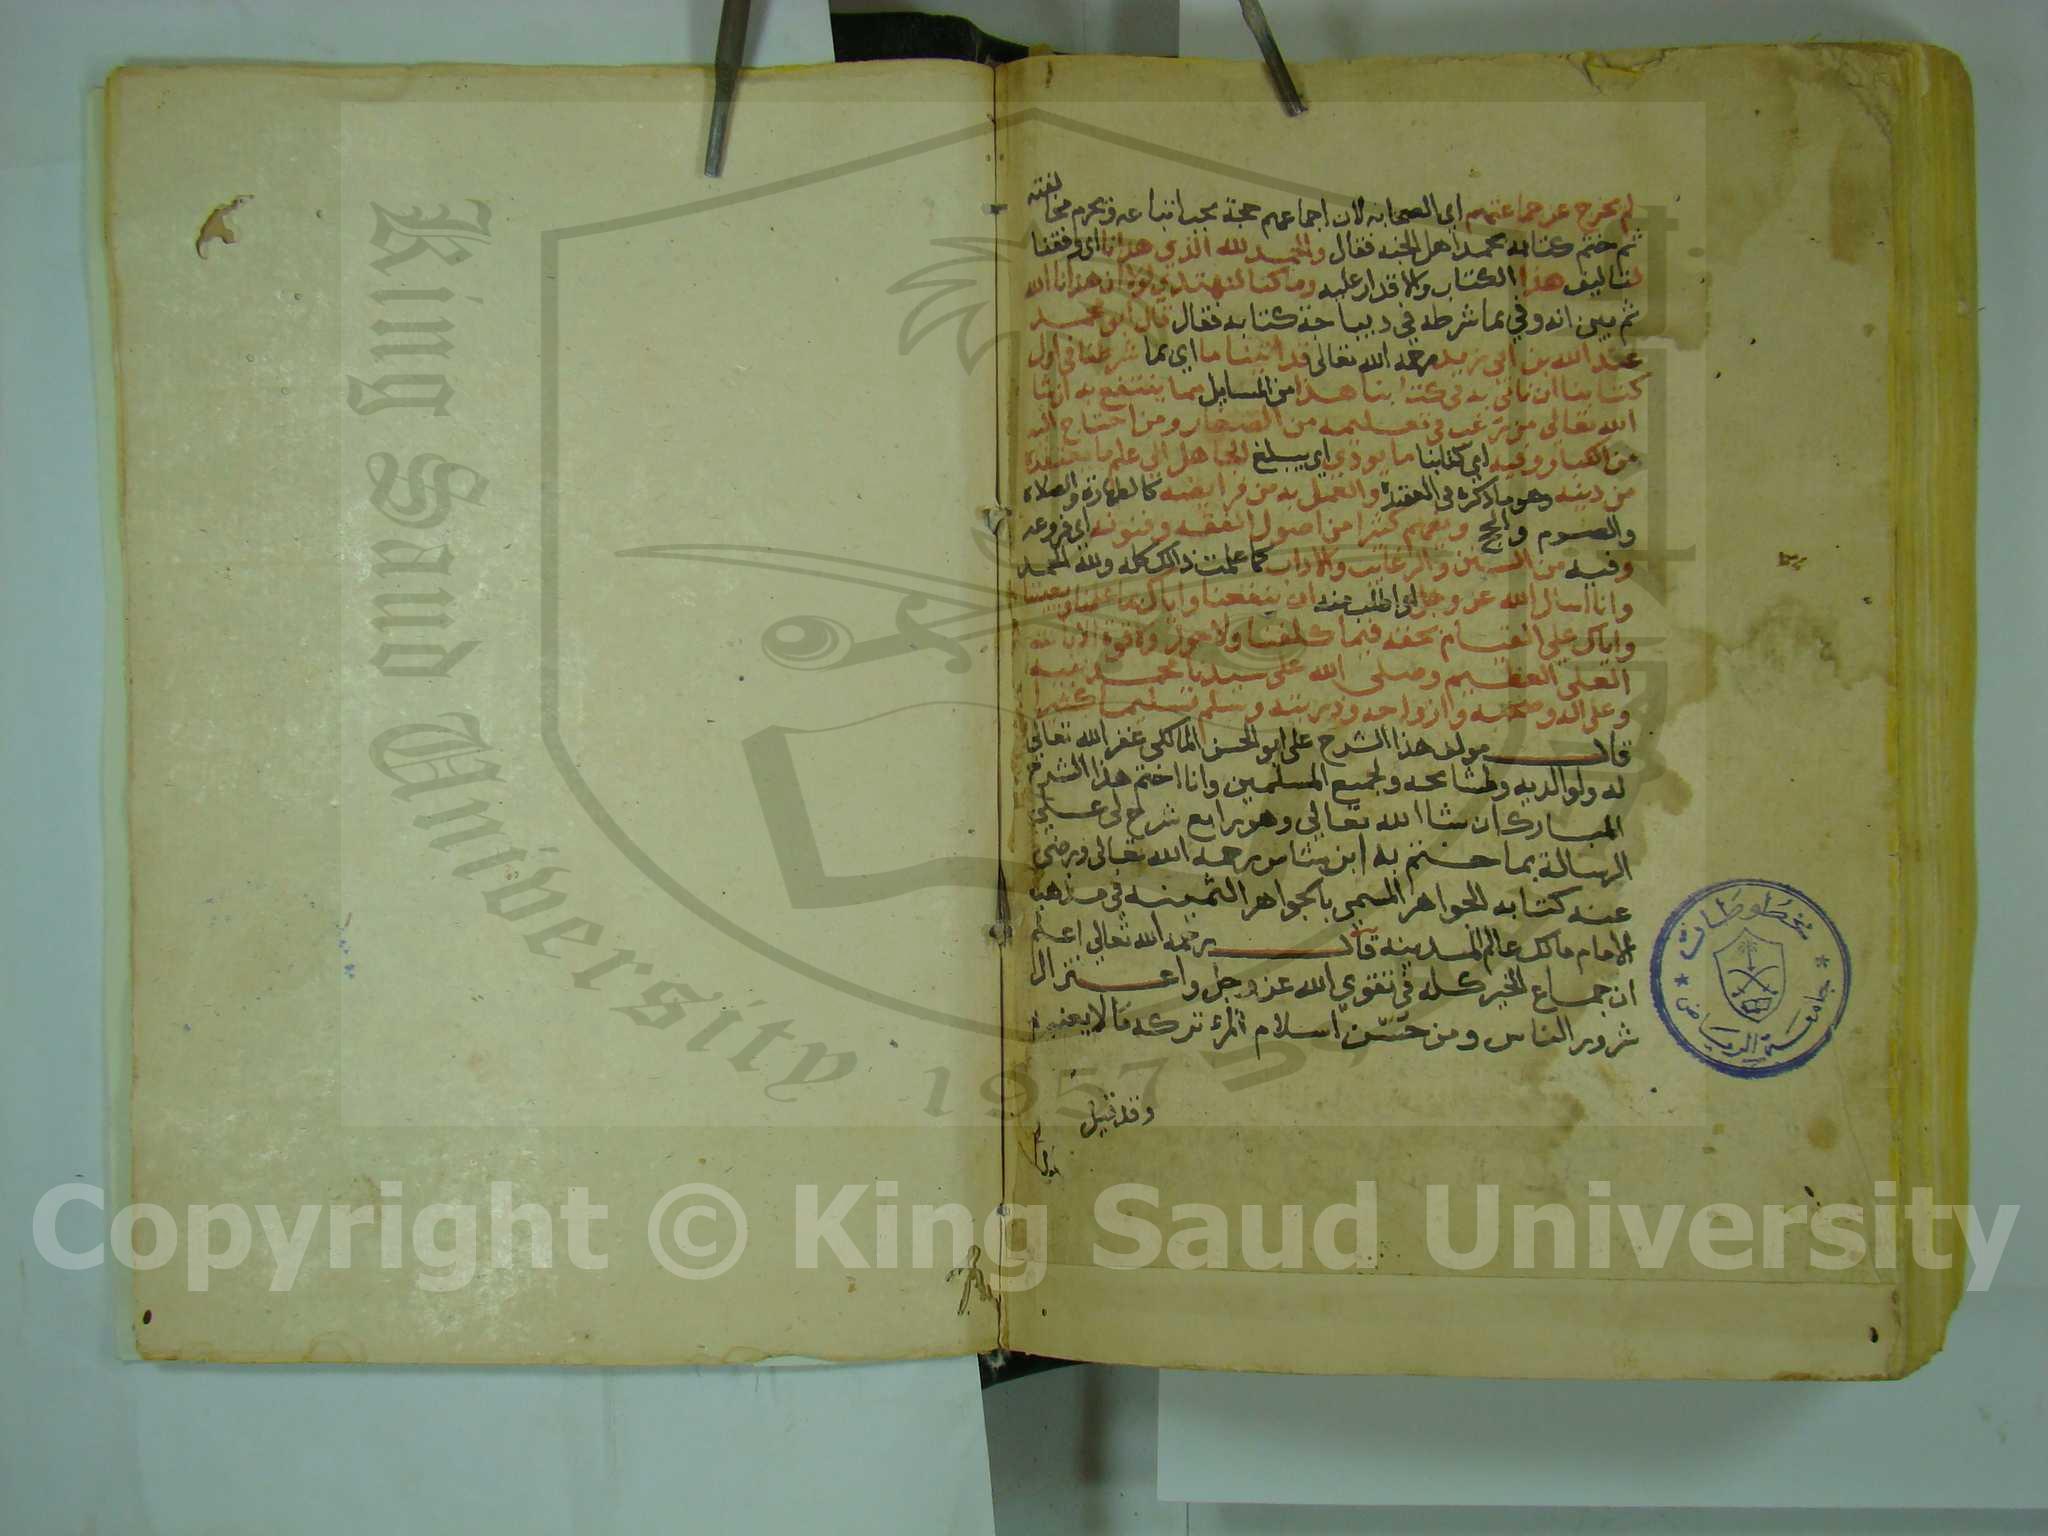 لم يخرج عن جماعتهم اي الصحابه لان اجماعهم حجة يجب اتباعه ويحرم مخالفته
ثم ختم كتابه بحمد اهل الجنه فقال والحمد لله الذي هدانا اي وفقنا
لتاليف هذا الكتاب والاقدار عليه وما كنا لنهتدي لولا ان هدانا الله
ثم بين انه وفي بما شرطه في ديباجة كتابه فقال قال ابو محمد
عبد الله بن ابي زيد رحمه الله تعالى قد اتينا ما اي بما شرطنا في اول
كتابنا ان ناتي به في كتابنا هذا من المسايل مما ينتفع به ان شا
الله تعالى من رغب في تعليمه من الصغار ومن احتاج اليه
من الكبار وفيه اي كتابنا ما يودي اي يبلغ الجاهل الى علم ما يعتقده
من دينه وهو ما ذكره في العقيدة والعمل به من فرايضه كالطهارة والصلاه
والصوم والحج ويفهم كثيرا من اصول الفقه وفنونه اي فروعه
وفيه من السنن والرغايب والاداب كما علمت ذالك كله ولله الحمد
وانا اسال الله عز وجل اي اطلب منه ان ينفعنا واياك بما علمنا ويعيننا
واياك على القيام بحقه فيما كلفنا ولا حول ولا قوة الا بالله
العلي العظيم وصلى الله على سيدنا محمد نبيه
وعلى اله وصحبه وازواجه وذريته وسلم تسليما كثيرا
قال مولف هذا الشرح علي ابو الحسن المالكي غفر الله تعالى
له ولوالديه ولمشايخه ولجميع المسلمين وانا اختم هذا الشرح
المبارك ان شا الله تعالي وهو رابع شرح لي على
الرسالة بما ختم به ابن شاس رحمه الله تعالى ورضي
عنه كتابه الجواهر المسمى بالجواهر الثمينه في مذاهب
الامام مالك عالم المدينه قال رحمه الله تعالي اعلم
ان جماع الخير كله في تقوي الله عز وجل واعتزال
شرور الناس ومن حسن اسلام المرء تركه مالا يعنيه
وقد قيل
مخطوطات
جامعة الرياض
King Saud University
1957
Copyright © King Saud University